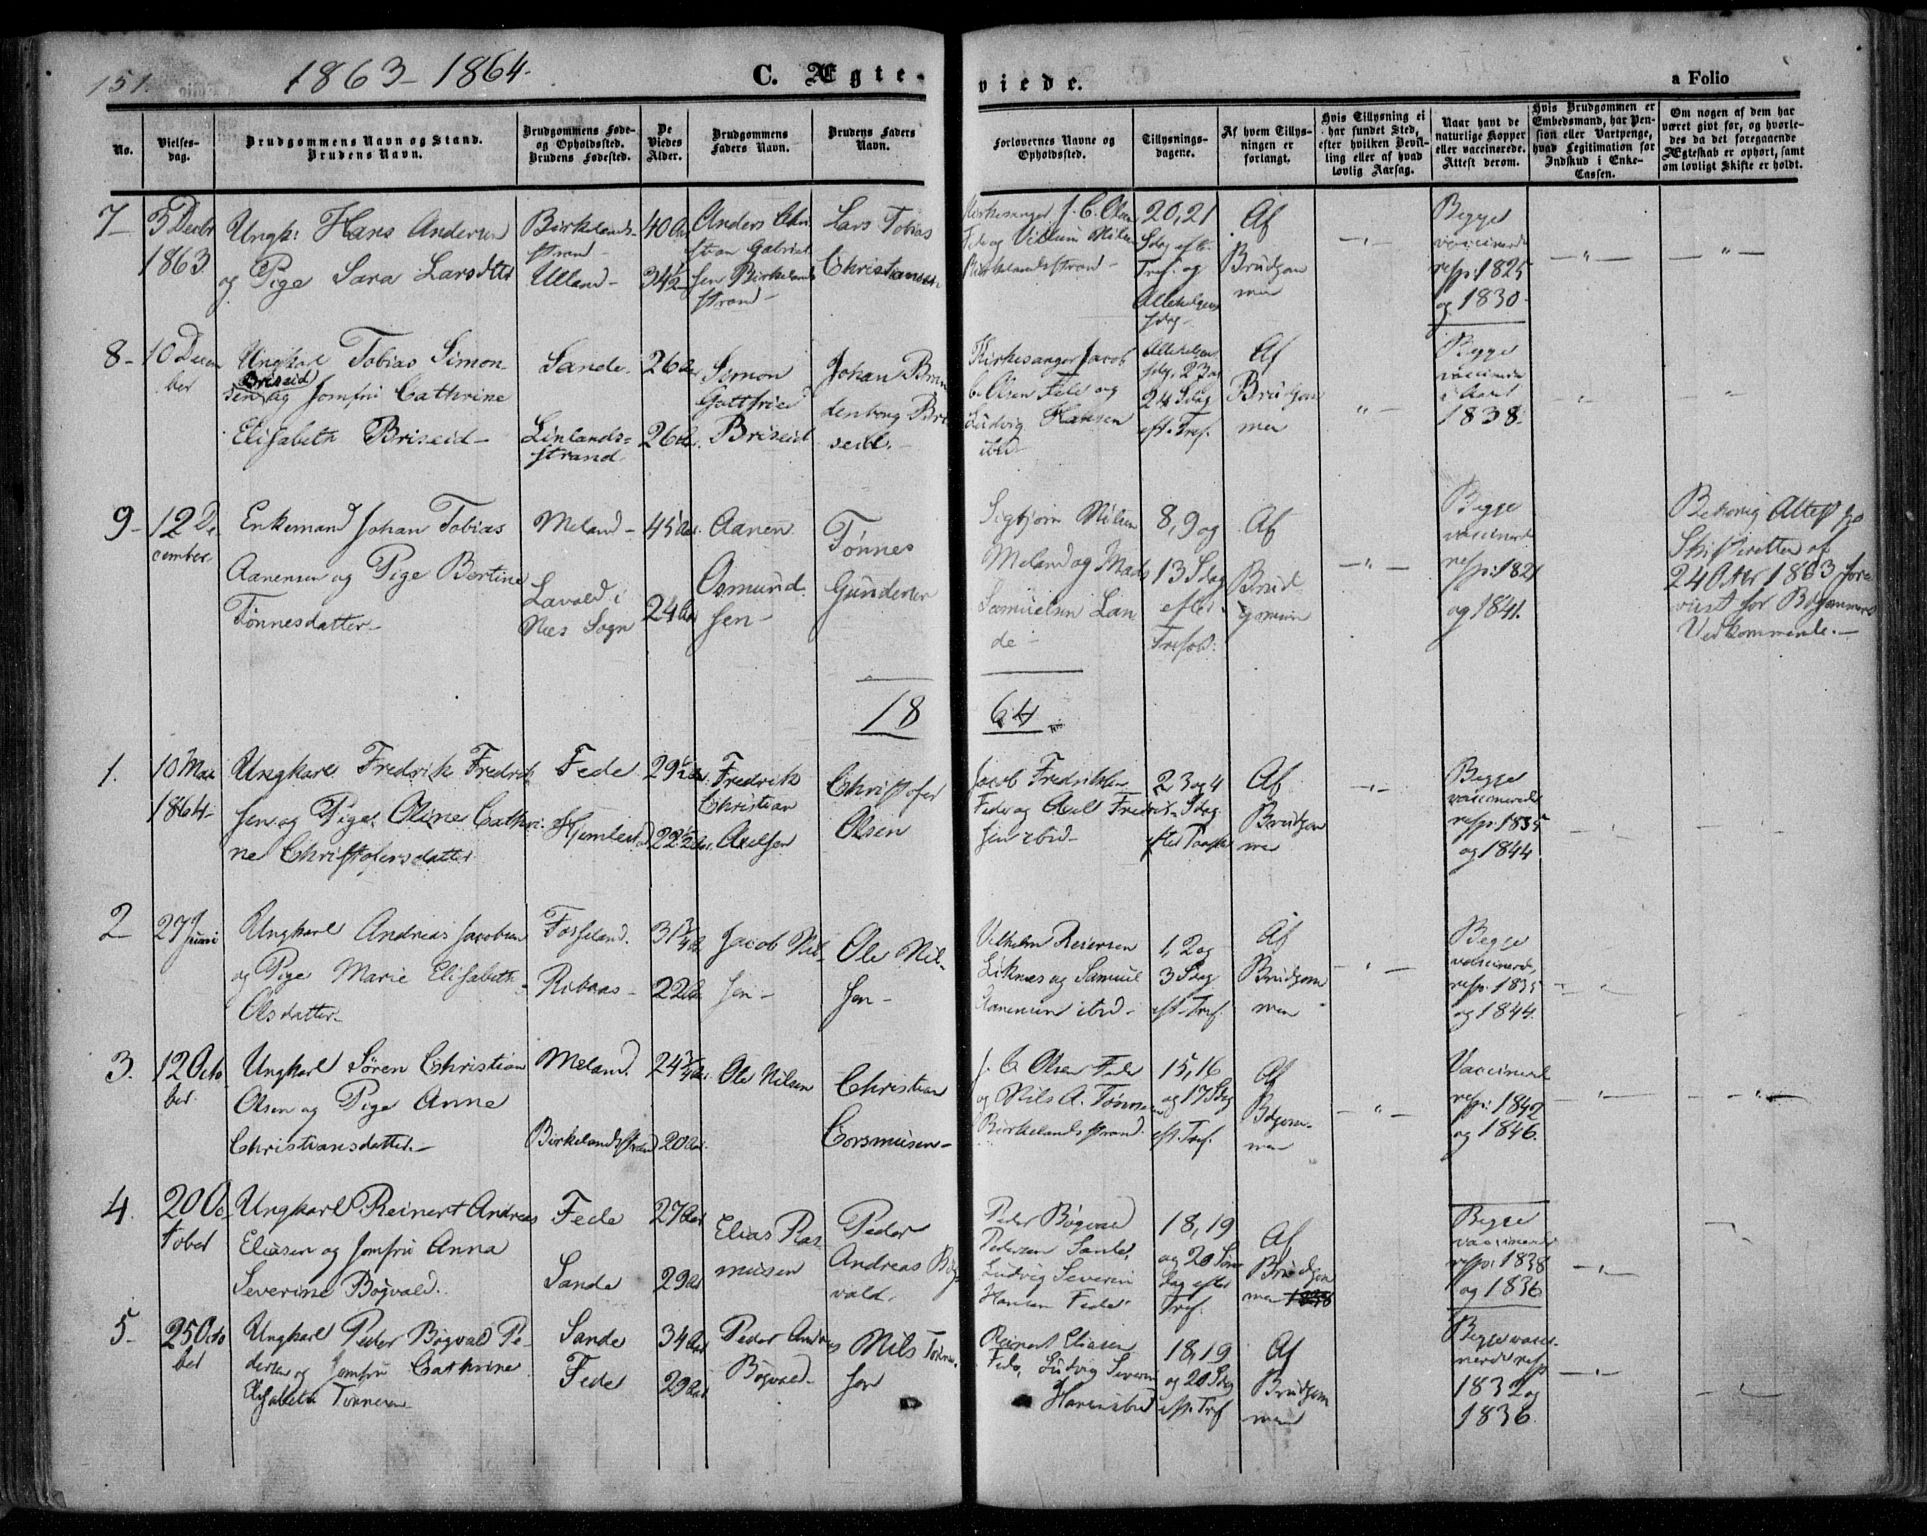 151.
1863-1864.
C. Ægteviede.
a Folio
No.
Vielses-
dag.
Brudgommens Navn og Stand.
Brudens Navn.
Brudgommens Føde-
og Opholdssted.
Brudens Fødested.
De
Viedes
Alder.
Brudgommens
Faders Navn.
Brudens Faders
Navn.
Forlovernes Navne og
Opholdssted.
Tillysnings-
dagene.
Af hvem Tillys-
ningen er
forlangt.
Hvis Tillysning ei
har fundet Sted,
efter hvilken Bevil-
ling eller af hvad
lovlig Aarsag.
Naar havt de
naturlige Kopper
eller vaccinerede.
Attest derom.
Hvis Brudgommen er
Embedsmand, har Pen-
sion eller Vartpenge,
hvad Legitimation for
Indskud i Enke-
Cassen.
Om nogen af dem har
været gift før, og hvorle-
des da det foregaaende
Ægteskab er ophørt, samt
om lovligt Skifte er holdt.
7- 3 Decbr
1863
Ungk: Hans Andersen
og Pige Sara Larsdtter
Birkelands-
strand-
Ulland-
40 Aar
34½
Anders Chri
stian Gabriel
sen Birkeland
strand-
Lars Tobias
Christiansen
Kirkesanger J. C. Olsen
Fede og Villum Nilsen
Birkelandsstrand-
20, 21
Sdag eft.
Tref. og
Allehelgens
sdag-
Af
Brudgom
men
Begge
vaccinerede
resp. 1825
og 1830-
8- 10 Decem
ber
Ungkarl Tobias Simon-
sen Briseid og Jomfru Cathrine
Elisabeth Briseid-
Sande-
Linlands-
strand-
26 Aar
26 Aar
Simon
Gottfried
Briseid
Johan Bran
denborg Bri
seid.-
Kirkesanger Jacob
C. Olsen Fede og
Ludvig Hansen
ibid-
Allehelgens
sdg, 23 og
24 Sdag
eft. Tref.
Af
Brudgom
men
Begge
vaccinerede
i Aaret
1838-
9- 12 De
cember
Enkemand Johan Tobias
Aanensen og Pige Bertine
Tønnesdatter-
Meland-
Lavold i
Næs Sogn
45 Aar
24 Aar
Aanen
Osmund
sen-
Tønnes
Gundersen
Sigbjørn Nilsen
Meland og Mads
Samuelsen Lan
de-
8, 9 og
13 Sdag
efter
Trefold:
Af
Brud
gommen
Begge
vaccinerede
resp: 1821
og 1841.
Behørig Attest fra
Skifteretten af
24 Octbr 1863 fore
viist for Bdgommens
Vedkommende.-
18 64.
1. 10 Mai
1864-
Ungkarl Fredrik Fredrik
sen og Pige Oline Cathri-
ne Christofersdatter
Fede
Hjemlestad
29½ Aar
22½ Aar.
Fredrik
Christian
Axelsen
Christofer
Olsen
Jacob Fredriksen
Fede og Axel Fredrik-
sen ibid-
2 3 og 4
Sdag
efter Paaske
Af
Brudgom
men
Begge
vaccinerede
resp: 1835
og 1844
2 27 Juni
Ungkarl Andreas Jacobsen
og Pige Marie Elisabeth
Olsdatter-
Fosseland.
Ribaas-
31¾ Aar
22 Aar
Jacob Nil-
sen-
Ole Nil-
sen-
Vilhelm Reiersen
Liknæs og Samuel
Aanensen ibid-
1, 2 og
3 Sdag
eft. Tref.
Af
Brudgom
men
Begge
vaccinerede,
resp. 1835
og 1844.
3. 12 Octo
ber.
Ungkarl Søren Christian
Olsen og Pige Anne
Christiansdatter-
Meland.
Birkelandsstrand
24¾ Aar.
20 Aar
Ole Nilsen
Christian
Corsmusen-
J. C. Olsen Fede
og Nils A. Tønnesen
Birkelandsstrand.
15, 16
og 17 Sdag
eft. Tref.
Af
Bdgom-
men
Vaccinerede
resp: 1842
og 1846.
4. 20 Oc
tober
Ungkarl Reinert Andreas
Eliasen og Jomfru Anna
Severine Bøgvald.
Fede
Sande
27 Aar
29 Aar
Elias Ras-
musen
Peder
Andreas Bøg
vald.
Peder Bøgvald
Pedersen Sande,
Ludvig Severin
Hansen Fede.
18, 19
og 20 Søn
dag efter
Tref.
Af
Brudgom
men 1838
Begge
vaccinerede
resp. 1838
og 1836
5- 25 Octo
ber
Ungkarl Peder Bøgvald Pe-
dersen og Jomfru Cathrine
Elisabeth Tønnesen
Sande
Fede
34 Aar
29 Aar
Peder Andreas
Bøgvald-
Nils Tønne-
sen
Reinert Eliasen
Fede, Ludvig Severin
Hansen ibid
18, 19
og 20 Sdag
eft. Tref
Af
Brudgom
men
Begge vacci-
nerede resp
1832 og
1836.